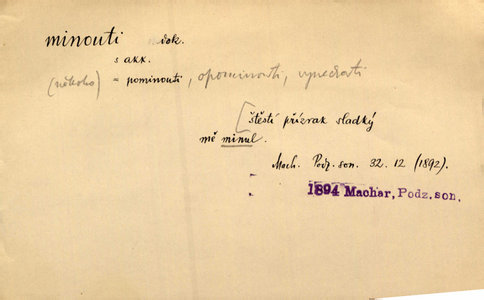 minouti dok.
s akk.
(někoho) = pominouti, opominouti, vynechati
[štěstí přízrak sladký
mě minul.
Mach. Podz. son. 32. 12 (1892).
1894 Machar, Podz. son.